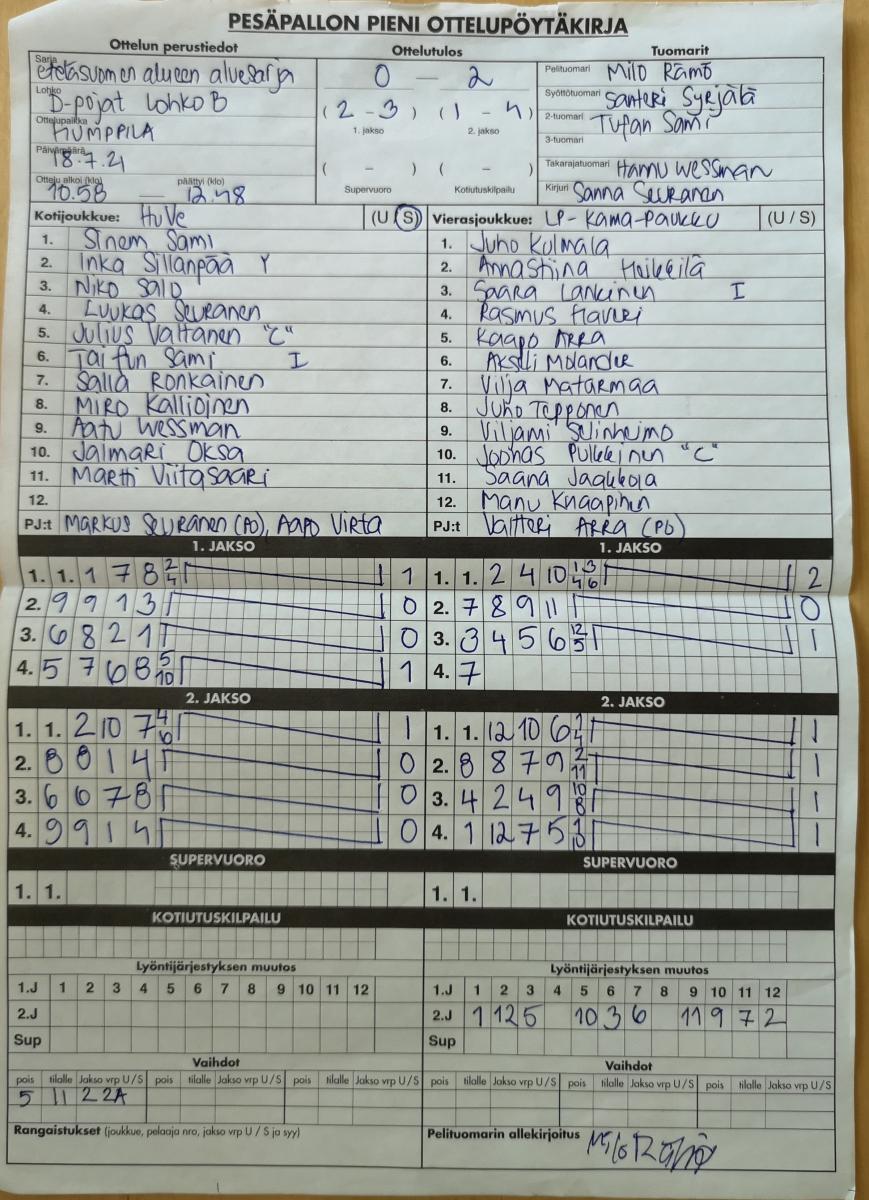 PESÄPALLON PIENI OTTELUPÖYTÄKIRJA
Ottelun perustiedot
Sarja
etelasuomen alueen aluesarja
Lohko
D-pojat Lohko B
Ottelupaikka
HUMPPILA
Päivämäärä
18.7.21
Ottelu alkoi (klo) päättyi (klo)
10.58 — 12.48
Ottelutulos
0 — 2
(2-3) (1-4)
1. jakso 2. jakso
( - ) ( - )
Supervuoro Kotiutuskilpailu
Tuomarit
Pelituomari Milo Rämö
Syöttötuomari Santeri Syrjälä
2-tuomari Tufan Sami
3-tuomari
Takarajatuomari Hannu Wessman
Kirjuri Sanna Seuranen
Kotijoukkue: HuVe (U / S)
1. Sinem Sami
2. Inka Sillanpää Y
3. Niko Salo
4. Luukas Seuranen
5. Julius Valtanen "C"
6. Taifun Sami I
7. Salla Ronkainen
8. Miro Kallioinen
9. Aatu Wessman
10. Jalmari Oksa
11. Martti Viitasaari
12.
PJ:t Markus Seuranen (PO), Aapo Virta
Vierasjoukkue: LP-Kama-Paukku (U / S)
1. Juho Kulmala
2. Annastiina Heikkilä
3. Saara Lankinen I
4. Rasmus Hauri
5. Kaapo Arra
6. Akselli Molander
7. Vilja Matarmaa
8. Juho Tepponen
9. Viljami Selinheimo
10. Joonas Pulkkinen "C"
11. Saana Jaakkola
12. Manu Knaapinen
PJ:t Valtteri Arra (PO)
1. JAKSO
1. 1. 1 7 8 2/4 1
2. 9 9 1 3 0
3. 6 8 2 1 0
4. 5 7 6 8 5/10 1
1. JAKSO
1. 1. 2 4 10 1 3 4 6 2
2. 7 8 9 11 0
3. 3 4 5 6 12/5 1
4. 7
2. JAKSO
1. 1. 2 10 7 4/6 1
2. 8 8 1 4 0
3. 6 6 7 8 0
4. 9 9 1 4 0
2. JAKSO
1. 1. 12 10 6 1
2. 8 8 7 9 2/11 1
3. 4 2 4 9 10/8 1
4. 1 12 7 5 1/10 1
SUPERVUORO
1. 1.
SUPERVUORO
1. 1.
KOTIUTUSKILPAILU
KOTIUTUSKILPAILU
Lyöntijärjestyksen muutos
1.J 1 2 3 4 5 6 7 8 9 10 11 12
2.J
Sup
Lyöntijärjestyksen muutos
1.J 1 2 3 4 5 6 7 8 9 10 11 12
2.J 1 12 5 10 3 6 11 9 7 2
Sup
Vaihdot
pois tilalle Jakso vrp U/S pois tilalle Jakso vrp U/S pois tilalle Jakso vrp U/S
5 11 2 2A
Vaihdot
pois tilalle Jakso vrp U/S pois tilalle Jakso vrp U/S pois tilalle Jakso vrp U/S
Rangaistukset (joukkue, pelaaja nro, jakso vrp U / S ja syy)
Pelituomarin allekirjoitus Milo Rämö